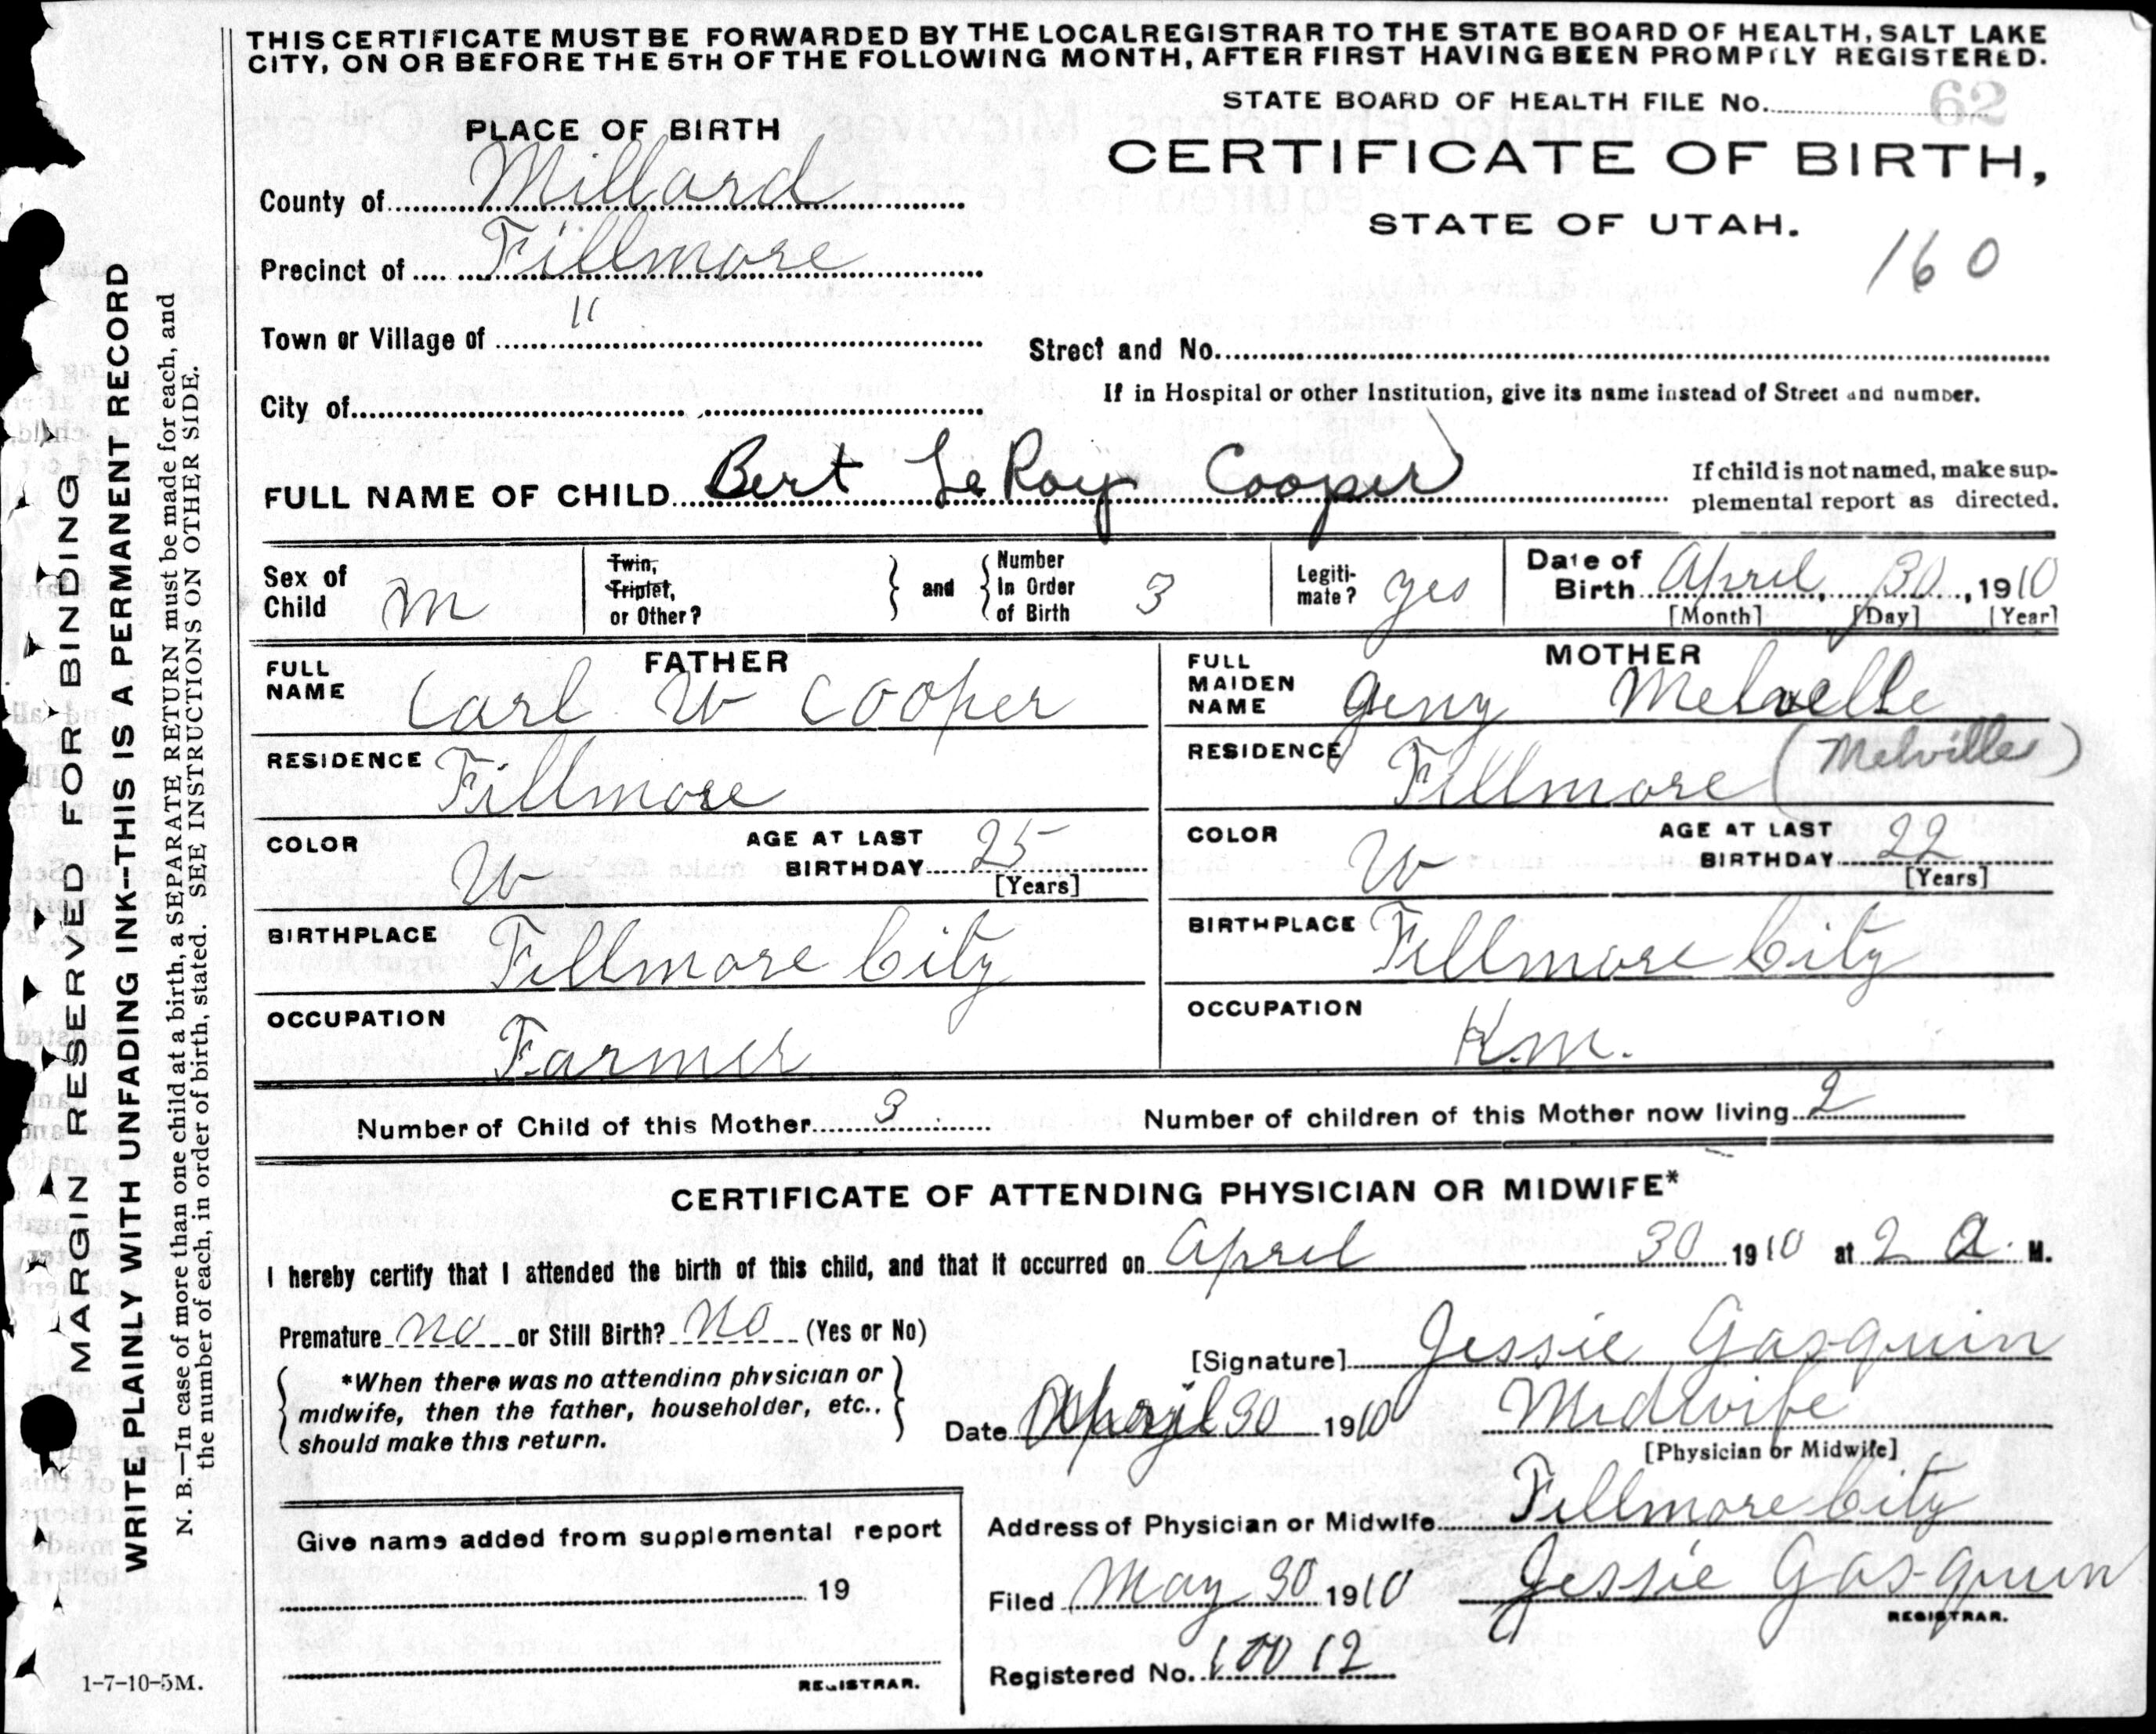 THIS CERTIFICATE MUST BE FORWARDED BY THE LOCAL REGISTRAR TO THE STATE BOARD OF HEALTH, SALT LAKE
CITY, ON OR BEFORE THE 5TH OF THE FOLLOWING MONTH, AFTER FIRST HAVING BEEN PROMPTLY REGISTERED.
STATE BOARD OF HEALTH FILE No. 62
PLACE OF BIRTH
CERTIFICATE OF BIRTH,
STATE OF UTAH.
160
County of Millard
Precinct of Fillmore
Town or Village of "
Street and No.
If in Hospital or other Institution, give its name instead of Street and number.
City of
FULL NAME OF CHILD Bert LeRoy Cooper
If child is not named, make sup-
plemental report as directed.
Sex of Child m
Twin, Triplet, or Other? and Number In Order of Birth 3
Legiti-mate? yes
Date of Birth April, 30, 1910
[Month] [Day] [Year]
FATHER
FULL NAME Carl W Cooper
RESIDENCE Fillmore
COLOR W AGE AT LAST BIRTHDAY 25 [Years]
BIRTHPLACE Fillmore City
OCCUPATION Farmer
MOTHER
FULL MAIDEN NAME Geny Melvelle
RESIDENCE Fillmore (Melville)
COLOR W AGE AT LAST BIRTHDAY 22 [Years]
BIRTHPLACE Fillmore City
OCCUPATION
Number of Child of this Mother 3 Number of children of this Mother now living 2
CERTIFICATE OF ATTENDING PHYSICIAN OR MIDWIFE*
I hereby certify that I attended the birth of this child, and that it occurred on April 30 1910 at 2 a. M.
Premature no or Still Birth? no (Yes or No)
*When there was no attending physician or
midwife, then the father, householder, etc.,
should make this return.
[Signature] Jessie Gasquin
Date April 30 1910 Midwife
[Physician or Midwife]
Address of Physician or Midwife Fillmore City
Filed May 30 1910 Jessie Gasquin
REGISTRAR.
Registered No. 10012
Give name added from supplemental report
19
REGISTRAR.
1-7-10-5M.
MARGIN RESERVED FOR BINDING
WRITE PLAINLY WITH UNFADING INK--THIS IS A PERMANENT RECORD
N. B.—In case of more than one child at a birth, a SEPARATE RETURN must be made for each, and
the number of each, in order of birth, stated. SEE INSTRUCTIONS ON OTHER SIDE.